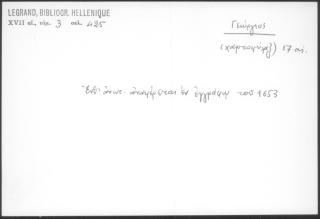 LEGRAND, BIBLIOGR. HELLENIQUE
XVII αἰ., τόμ. 3 σελ. 425
Γεώργιος
(χαρτοφύλαξ) 17 αἰ.
ἀναφέρεται ἐν ἐγγράφῳ τοῦ 1653